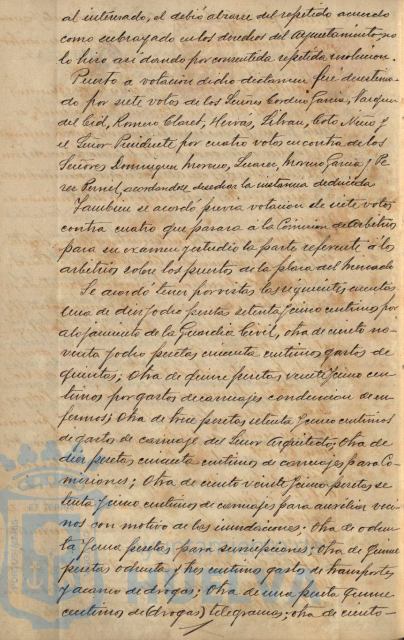 al interesado, el debió alzarse del repetido acuerdo
como subrogado en los derechos del Ayuntamiento, no
lo hizo así dando por consentida repetida resolucion.
Puesto a votación dicho dictamen fue desestima-
do por siete votos de los Señores Cordero Garcia, Vazquez
del Cid, Romero Claret, Hervás, Coto Mesa y
el Señor Presidente por cuatro votos en contra de los
Señores Dominguez Moreno, Suarez, Moreno Garcia y Pe-
rez acordandose desechar la instancia deducida
Tambien se acordó previa votacion de siete votos
contra cuatro que pasara a la Comision de arbitrios
para su examen y estudio la parte referente á los
arbitrios sobre los puestos de la plaza del Mercado
Se acordó tener por vistas las siguientes cuentas
una de diez y ocho pesetas setenta y cinco centimos por
alojamiento de la Guardia Civil, otra de ciento no-
venta y ocho pesetas cincuenta centimos gastos de
quintas; Otra de quince pesetas veinticinco cen-
timos por gastos de carruajes conduccion de en-
fermos; Otra de trece pesetas setenta y cinco centimos
de gastos de carruaje del Señor Arquitecto; Otra de
diez pesetas cincuenta centimos de carruajes para Co-
misiones; Otra de ciento veinte y cinco pesetas se-
tenta y cinco centimos de carruajes para auxiliar veci-
nos con motivo de las inundaciones; Otra de ochen-
ta y una pesetas para suscripciones; Otra de quince
pesetas ochenta y tres centimos gastos de transportes
y acarreo de drogas; Otra de una peseta quince
centimos de (drogas) telegramas; otra de ciento-